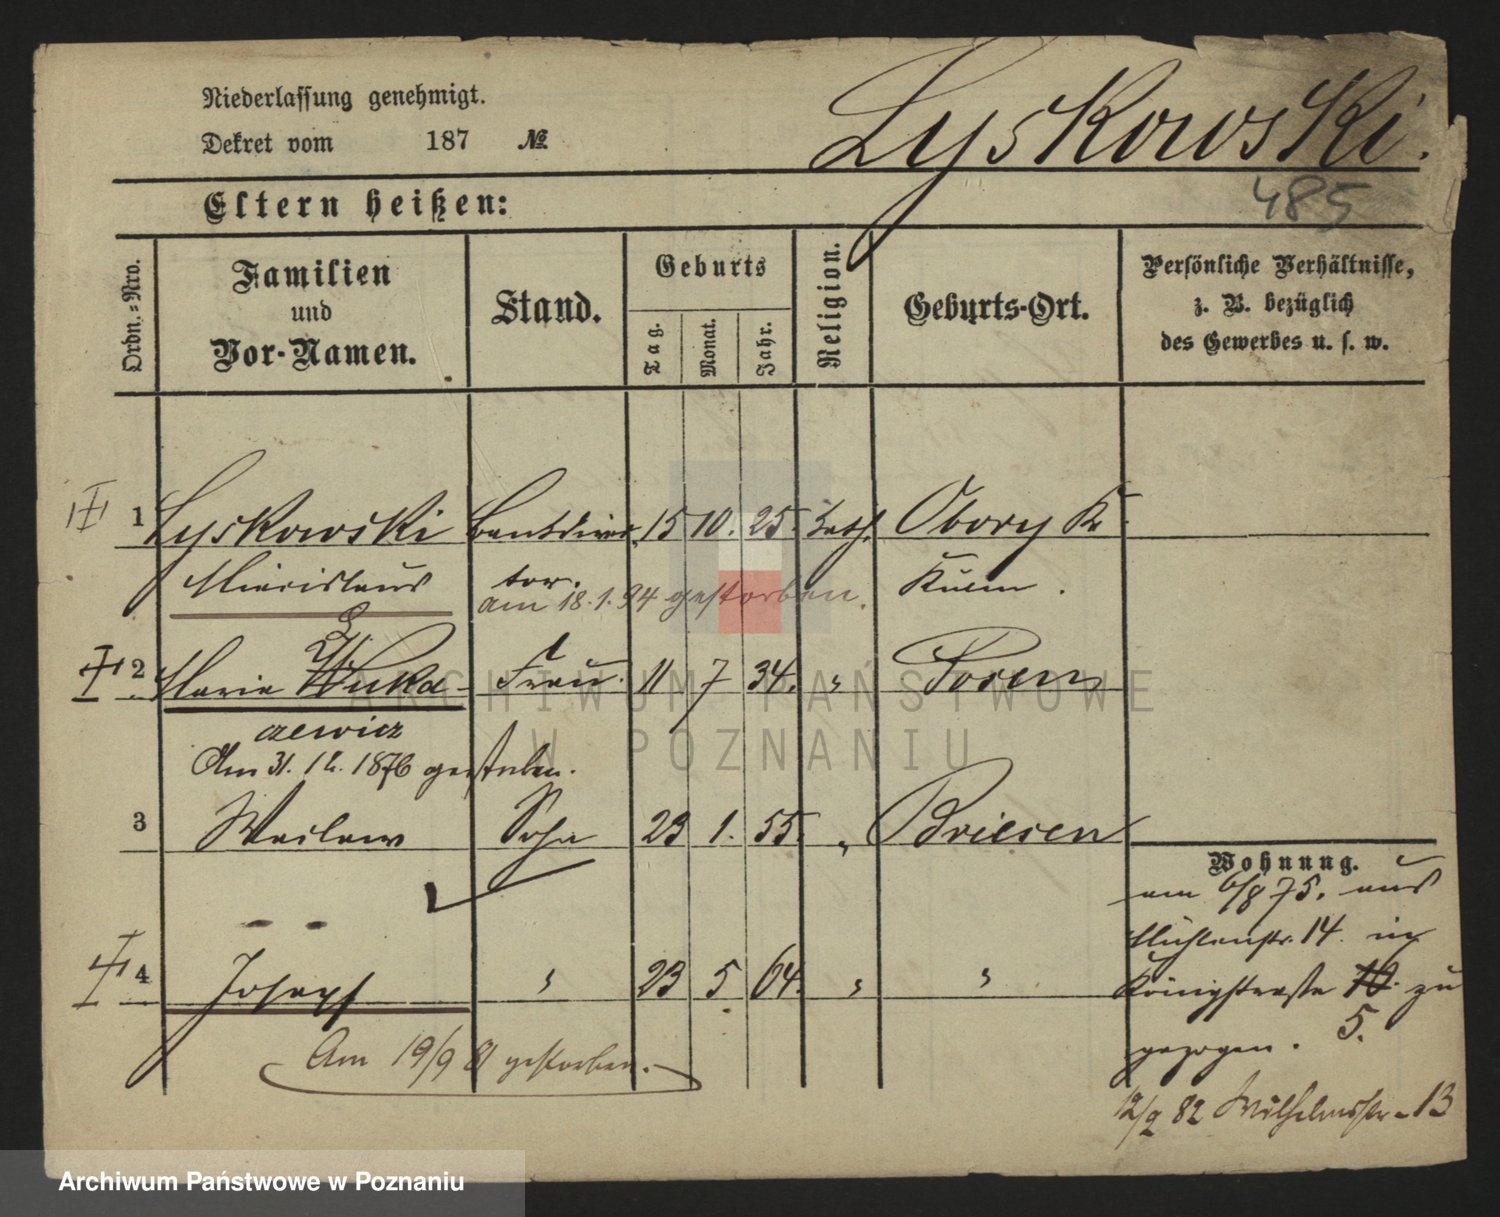 Niederlassung genehmigt.
Dekret vom 187 №
Lyskowski.
485
Eltern heißen:
Ordn.-Nro.
Familien
und
Vor-Namen.
Stand.
Geburts
Tag.
Monat.
Jahr.
Religion.
Geburts-Ort.
Persönliche Verhältnisse,
z. B. bezüglich
des Gewerbes u. s. w.
1 Lyskowski Bankdirec 15 10. 25. kath. Obory Kr.
Miecislaus tor. Kulm.
am 18.1.94 gestorben.
2 Maria Frau. 11 7 34. " Posen
aewicz
Am 31. 12. 1876 gestorben.
3 Waclaw Sohn 23 1. 55. " Briesen
Wohnung.
am 6/8 75. aus
Mühlenstr. 14. in
4 Joseph " 23 5 64. " "
Königstrasse 10. zu
5.
gezogen.
Am 19/9 81 gestorben.
12/2 82 Wilhelmsstr. 13
ARCHIWUM PAŃSTWOWE
W POZNANIU
Archiwum Państwowe w Poznaniu